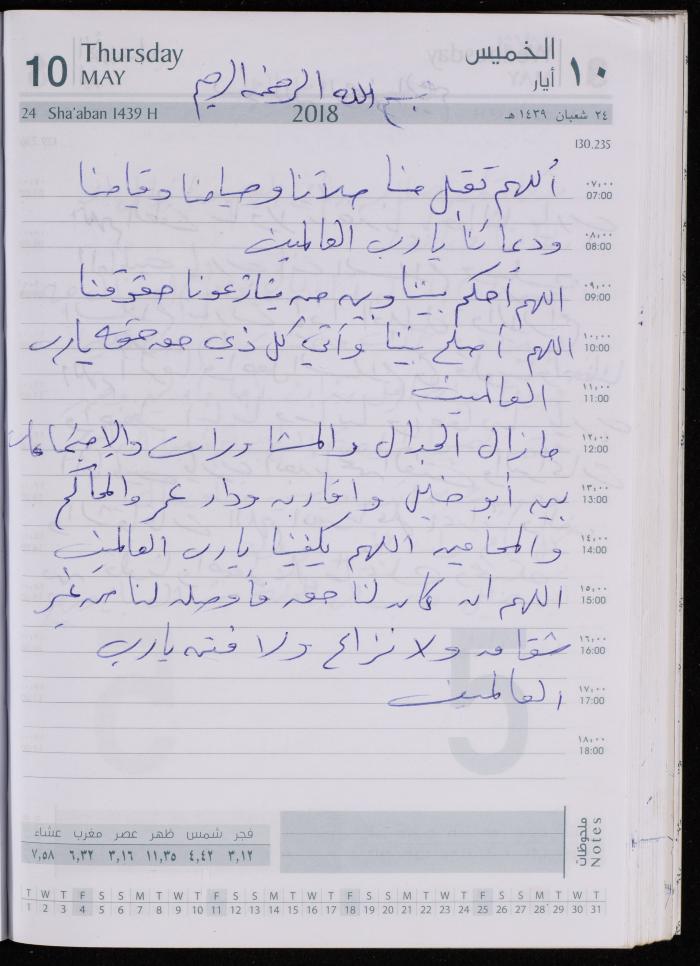 10 Thursday MAY
الخميس ١٠ أيار
بسم الله الرحمن الرحيم
24 Sha'aban 1439 H 2018 ٢٤ شعبان ١٤٣٩ هـ
130.235
٠٧,٠٠ 07:00
أللهم تقبل منا صلاتنا وصيامنا وقيامنا
٠٨,٠٠ 08:00
ودعائنا يارب العالمين
٠٩,٠٠ 09:00
اللهم أحكم بيننا وبين من ينازعونا حقوقنا
١٠,٠٠ 10:00
اللهم أصلح بيننا وآتي كل ذي حق حقه يارب
١١,٠٠ 11:00
العالمين
١٢,٠٠ 12:00
مازال الجدال والمشاورات والاجتماعات
١٣,٠٠ 13:00
بين أبو خليل واقاربه ودار عمر والمحاكم
١٤,٠٠ 14:00
والمحامين اللهم يكفينا يارب العالمين
١٥,٠٠ 15:00
اللهم ان كان لنا حق فأوصله لنا من غير
١٦,٠٠ 16:00
شقاق ولا نزاع ولا فتنه يارب
١٧,٠٠ 17:00
العالمين
١٨,٠٠ 18:00
5
ملحوظات Notes
فجر شمس ظهر عصر مغرب عشاء
٣,١٢ ٤,٤٢ ١١,٣٥ ٣,١٦ ٦,٣٢ ٧,٥٨
T W T F S S M T W T F S S M T W T F S S M T W T F S S M T W T
1 2 3 4 5 6 7 8 9 10 11 12 13 14 15 16 17 18 19 20 21 22 23 24 25 26 27 28 29 30 31